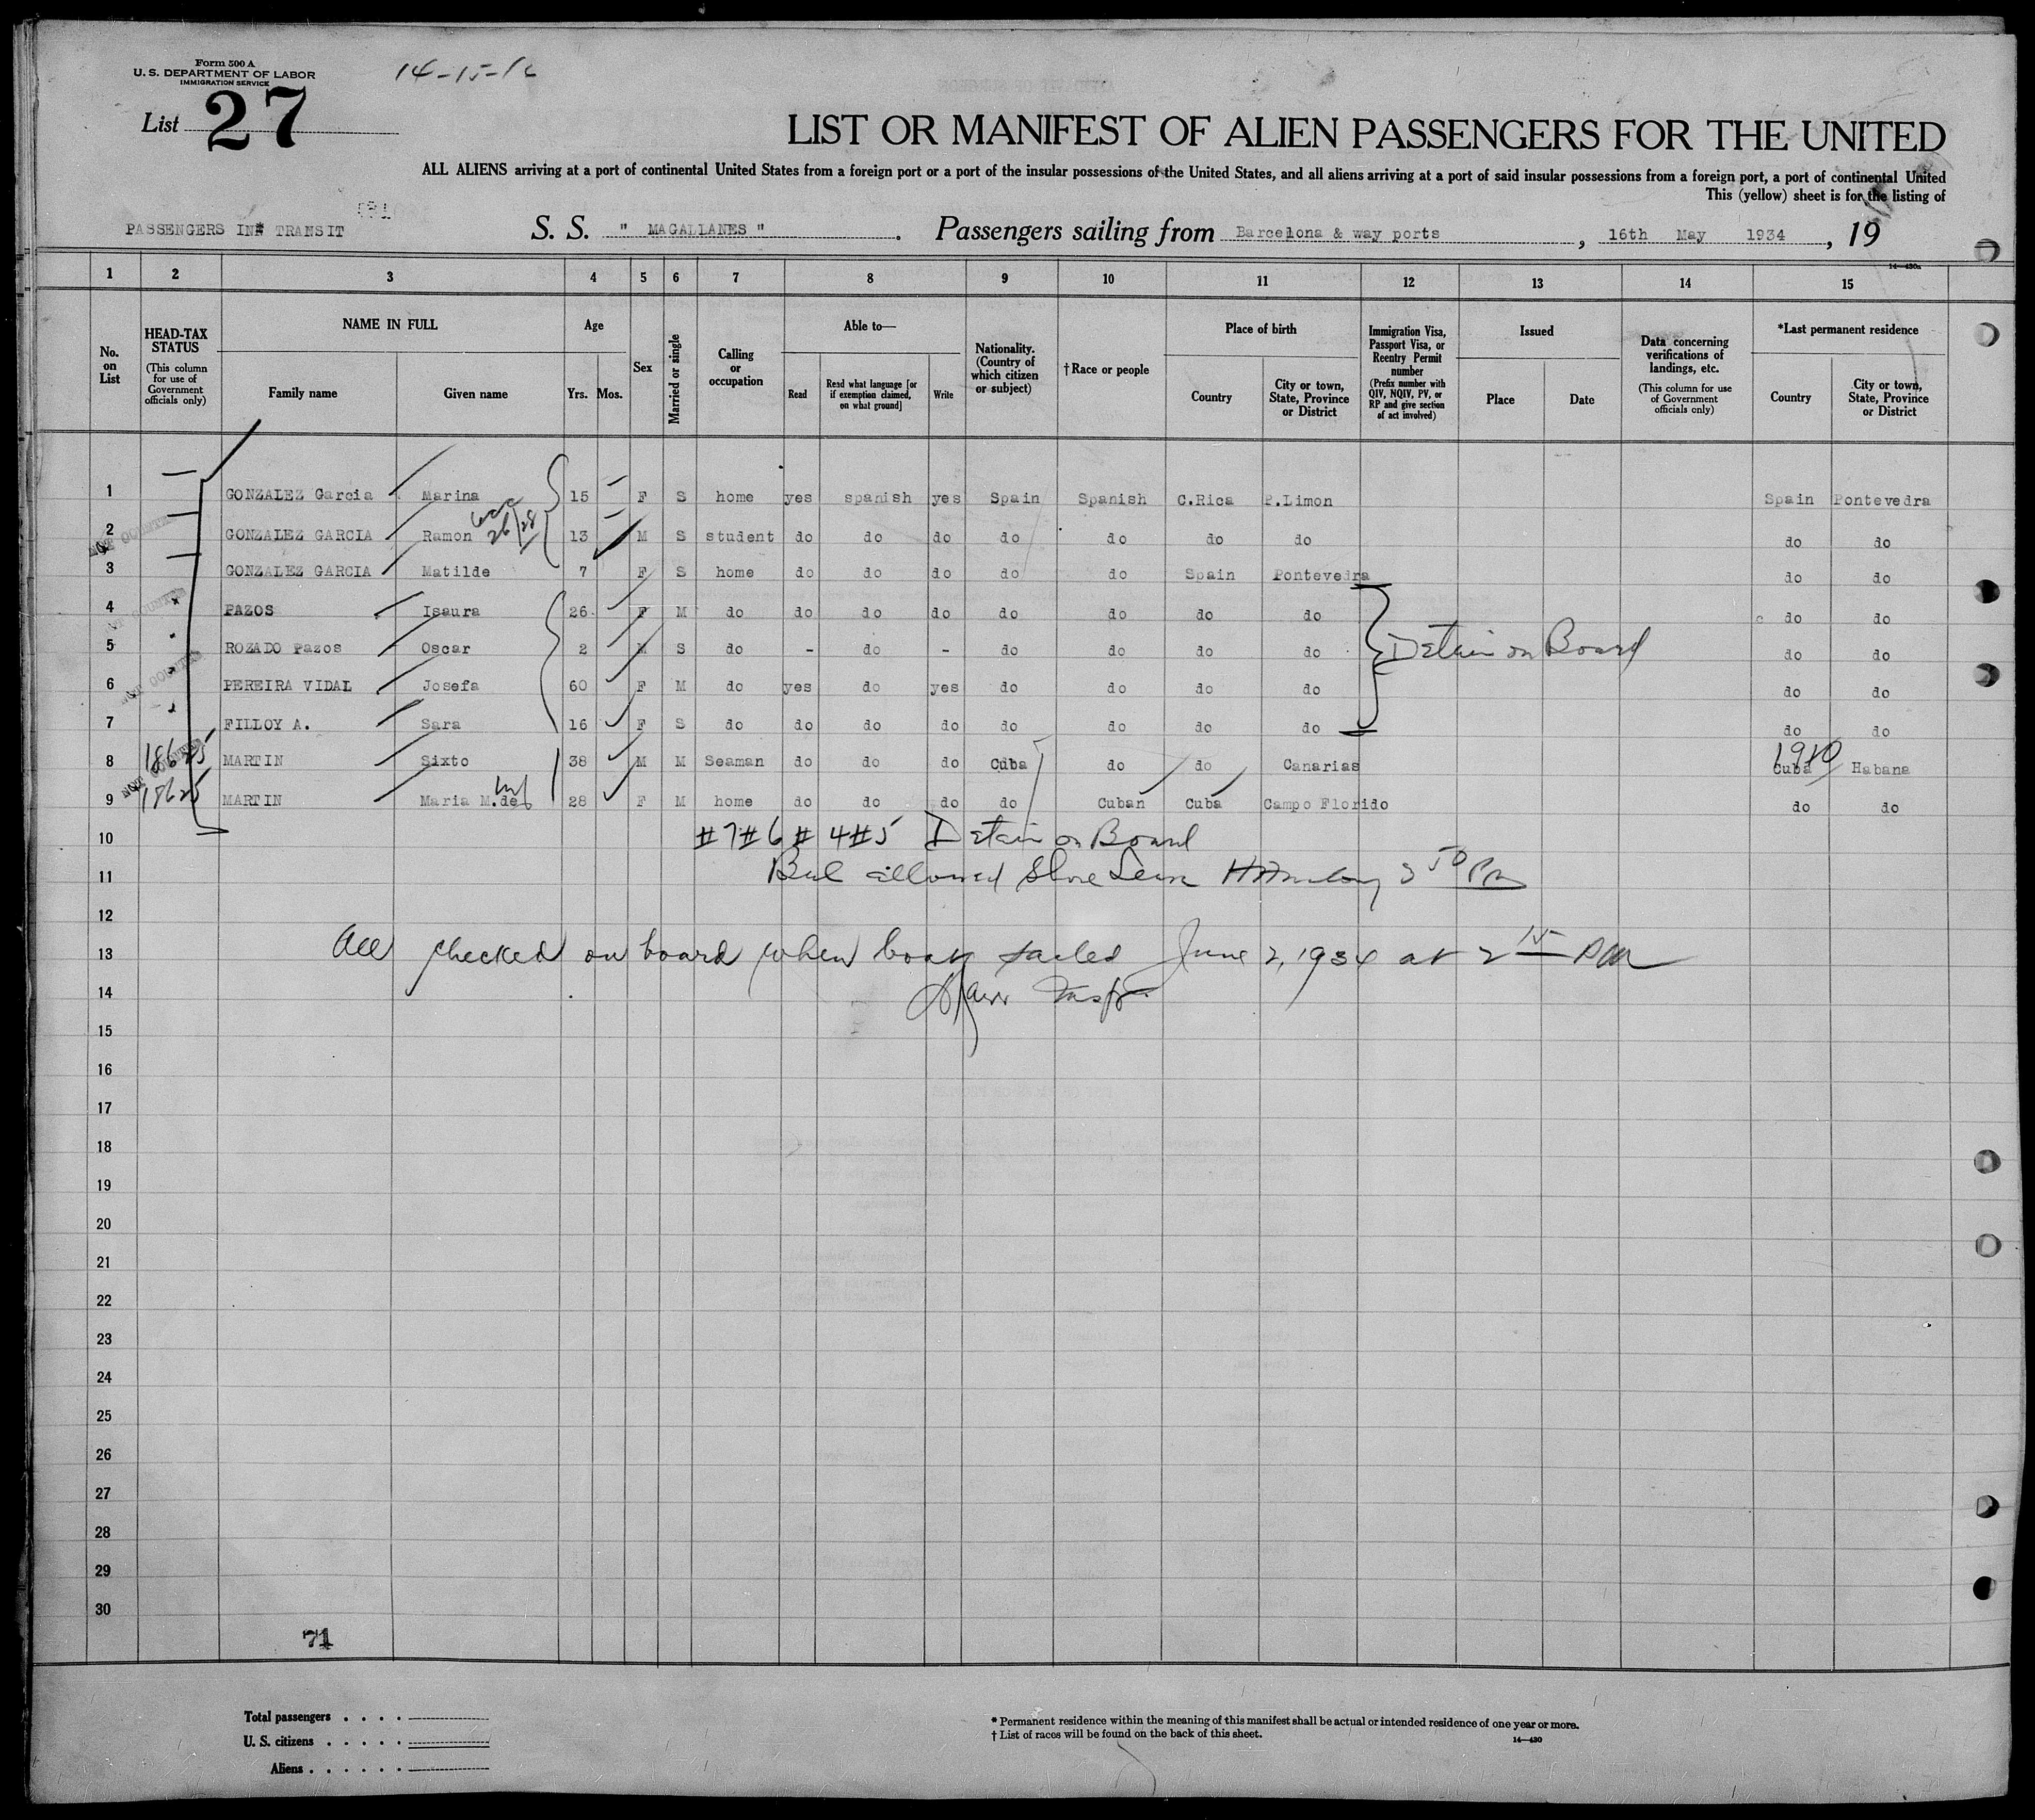 Form 500 A
U. S. DEPARTMENT OF LABOR
IMMIGRATION SERVICE
List 27
LIST OR MANIFEST OF ALIEN PASSENGERS FOR THE UNITED
ALL ALIENS arriving at a port of continental United States from a foreign port or a port of the insular possessions of the United States, and all aliens arriving at a port of said insular possessions from a foreign port, a port of continental United
This (yellow) sheet is for the listing of
PASSENGERS IN TRANSIT S. S. " MAGALLANES " . Passengers sailing from Barcelona & way ports , 16th May 1934 , 19
14—430a
1 2 3 4 5 6 7 8 9 10 11 12 13 14 15
No. on List
HEAD-TAX STATUS
(This column for use of Government officials only)
NAME IN FULL
Family name Given name
Age
Yrs. Mos.
Sex
Married or single
Calling or occupation
Able to—
Read
Read what language [or if exemption claimed, on what ground]
Write
Nationality. (Country of which citizen or subject)
†Race or people
Place of birth
Country
City or town, State, Province or District
Immigration Visa, Passport Visa, or Reentry Permit number
(Prefix number with QIV, NQIV, PV, or RP and give section of act involved)
Issued
Place Date
Data concerning verifications of landings, etc.
(This column for use of Government officials only)
*Last permanent residence
Country
City or town, State, Province or District
1 GONZALEZ Garcia Marina 15 F S home yes spanish yes Spain Spanish C.Rica P.Limon Spain Pontevedra
2 GONZALEZ GARCIA Ramon 13 M S student do do do do do do do do do
3 GONZALEZ GARCIA Matilde 7 F S home do do do do do Spain Pontevedra do do
4 PAZOS Isaura 26 F M do do do do do do do do do do
5 ROZADO Pazos Oscar 2 M S do - do - do do do do do do
Detain on Board
6 PEREIRA VIDAL Josefa 60 F M do yes do yes do do do do do do
7 FILLOY A. Sara 16 F S do do do do do do do do do do
1910
8 MARTIN Sixto 38 M M Seaman do do do Cuba do do Canarias Cuba Habana
9 MARTIN Maria M.de 28 F M home do do do do Cuban Cuba Campo Florido do do
10 #7#6#4#5 Detain on Board
11 But allowed Shore
12
13 All checked on board when boat sailed June 2, 1934 at 2 15 PM
14
15
16
17
18
19
20
21
22
23
24
25
26
27
28
29
30
71
Total passengers . . . .
U. S. citizens . . . . .
Aliens . . . . . .
* Permanent residence within the meaning of this manifest shall be actual or intended residence of one year or more.
† List of races will be found on the back of this sheet.
14—430